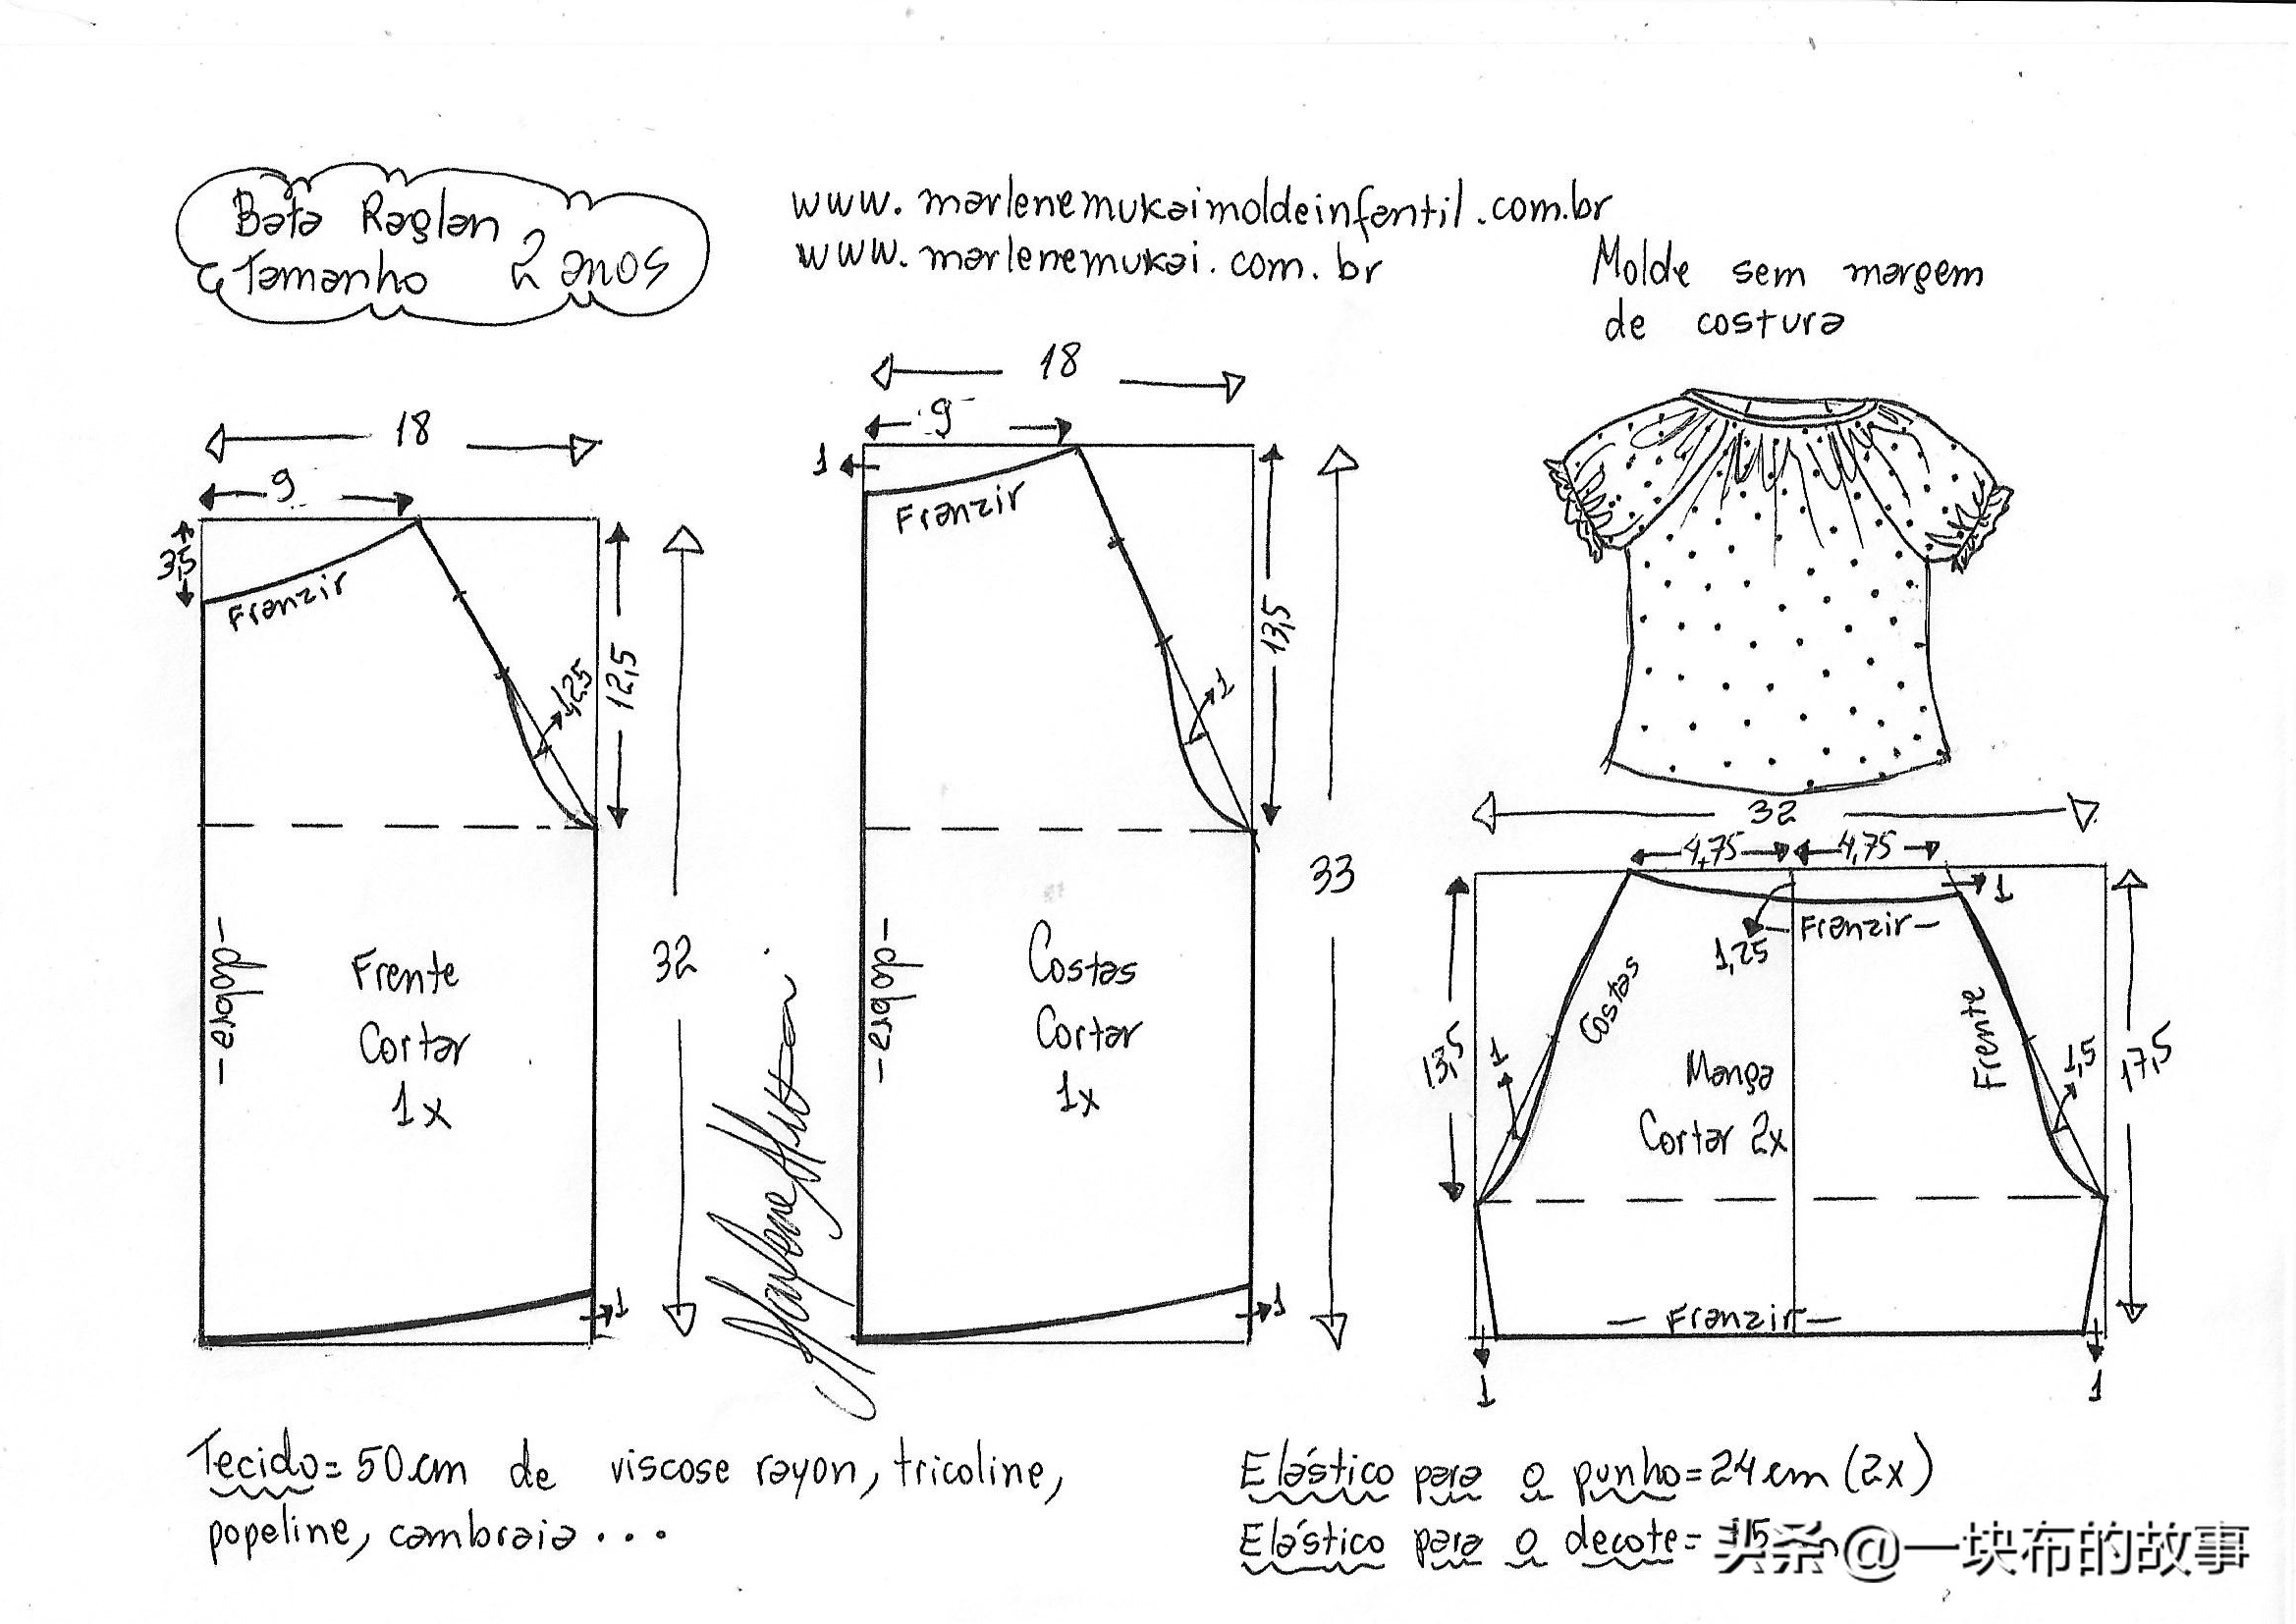 Bata Raglan
Tamanho 2 anos
www.marlenemukaimoldeinfantil.com.br
www.marlenemukai.com.br
Molde sem margem
de costura
18
9
3,5
Franzir
1,25
12,5
32
-dobra-
Frente
Cortar
1x
18
9
1
Franzir
1
13,5
33
-dobra-
Costas
Cortar
1x
1
1
Marlene Mukai
32
4,75
4,75
1
1,25
Franzir-
13,5
1
Costas
Frente
1,5
17,5
Manga
Cortar 2x
- Franzir -
1
1
Tecido= 50cm de viscose rayon, tricoline,
popeline, cambraia...
Elástico para o punho=24cm (2x)
Elástico para o decote=
头条@一块布的故事